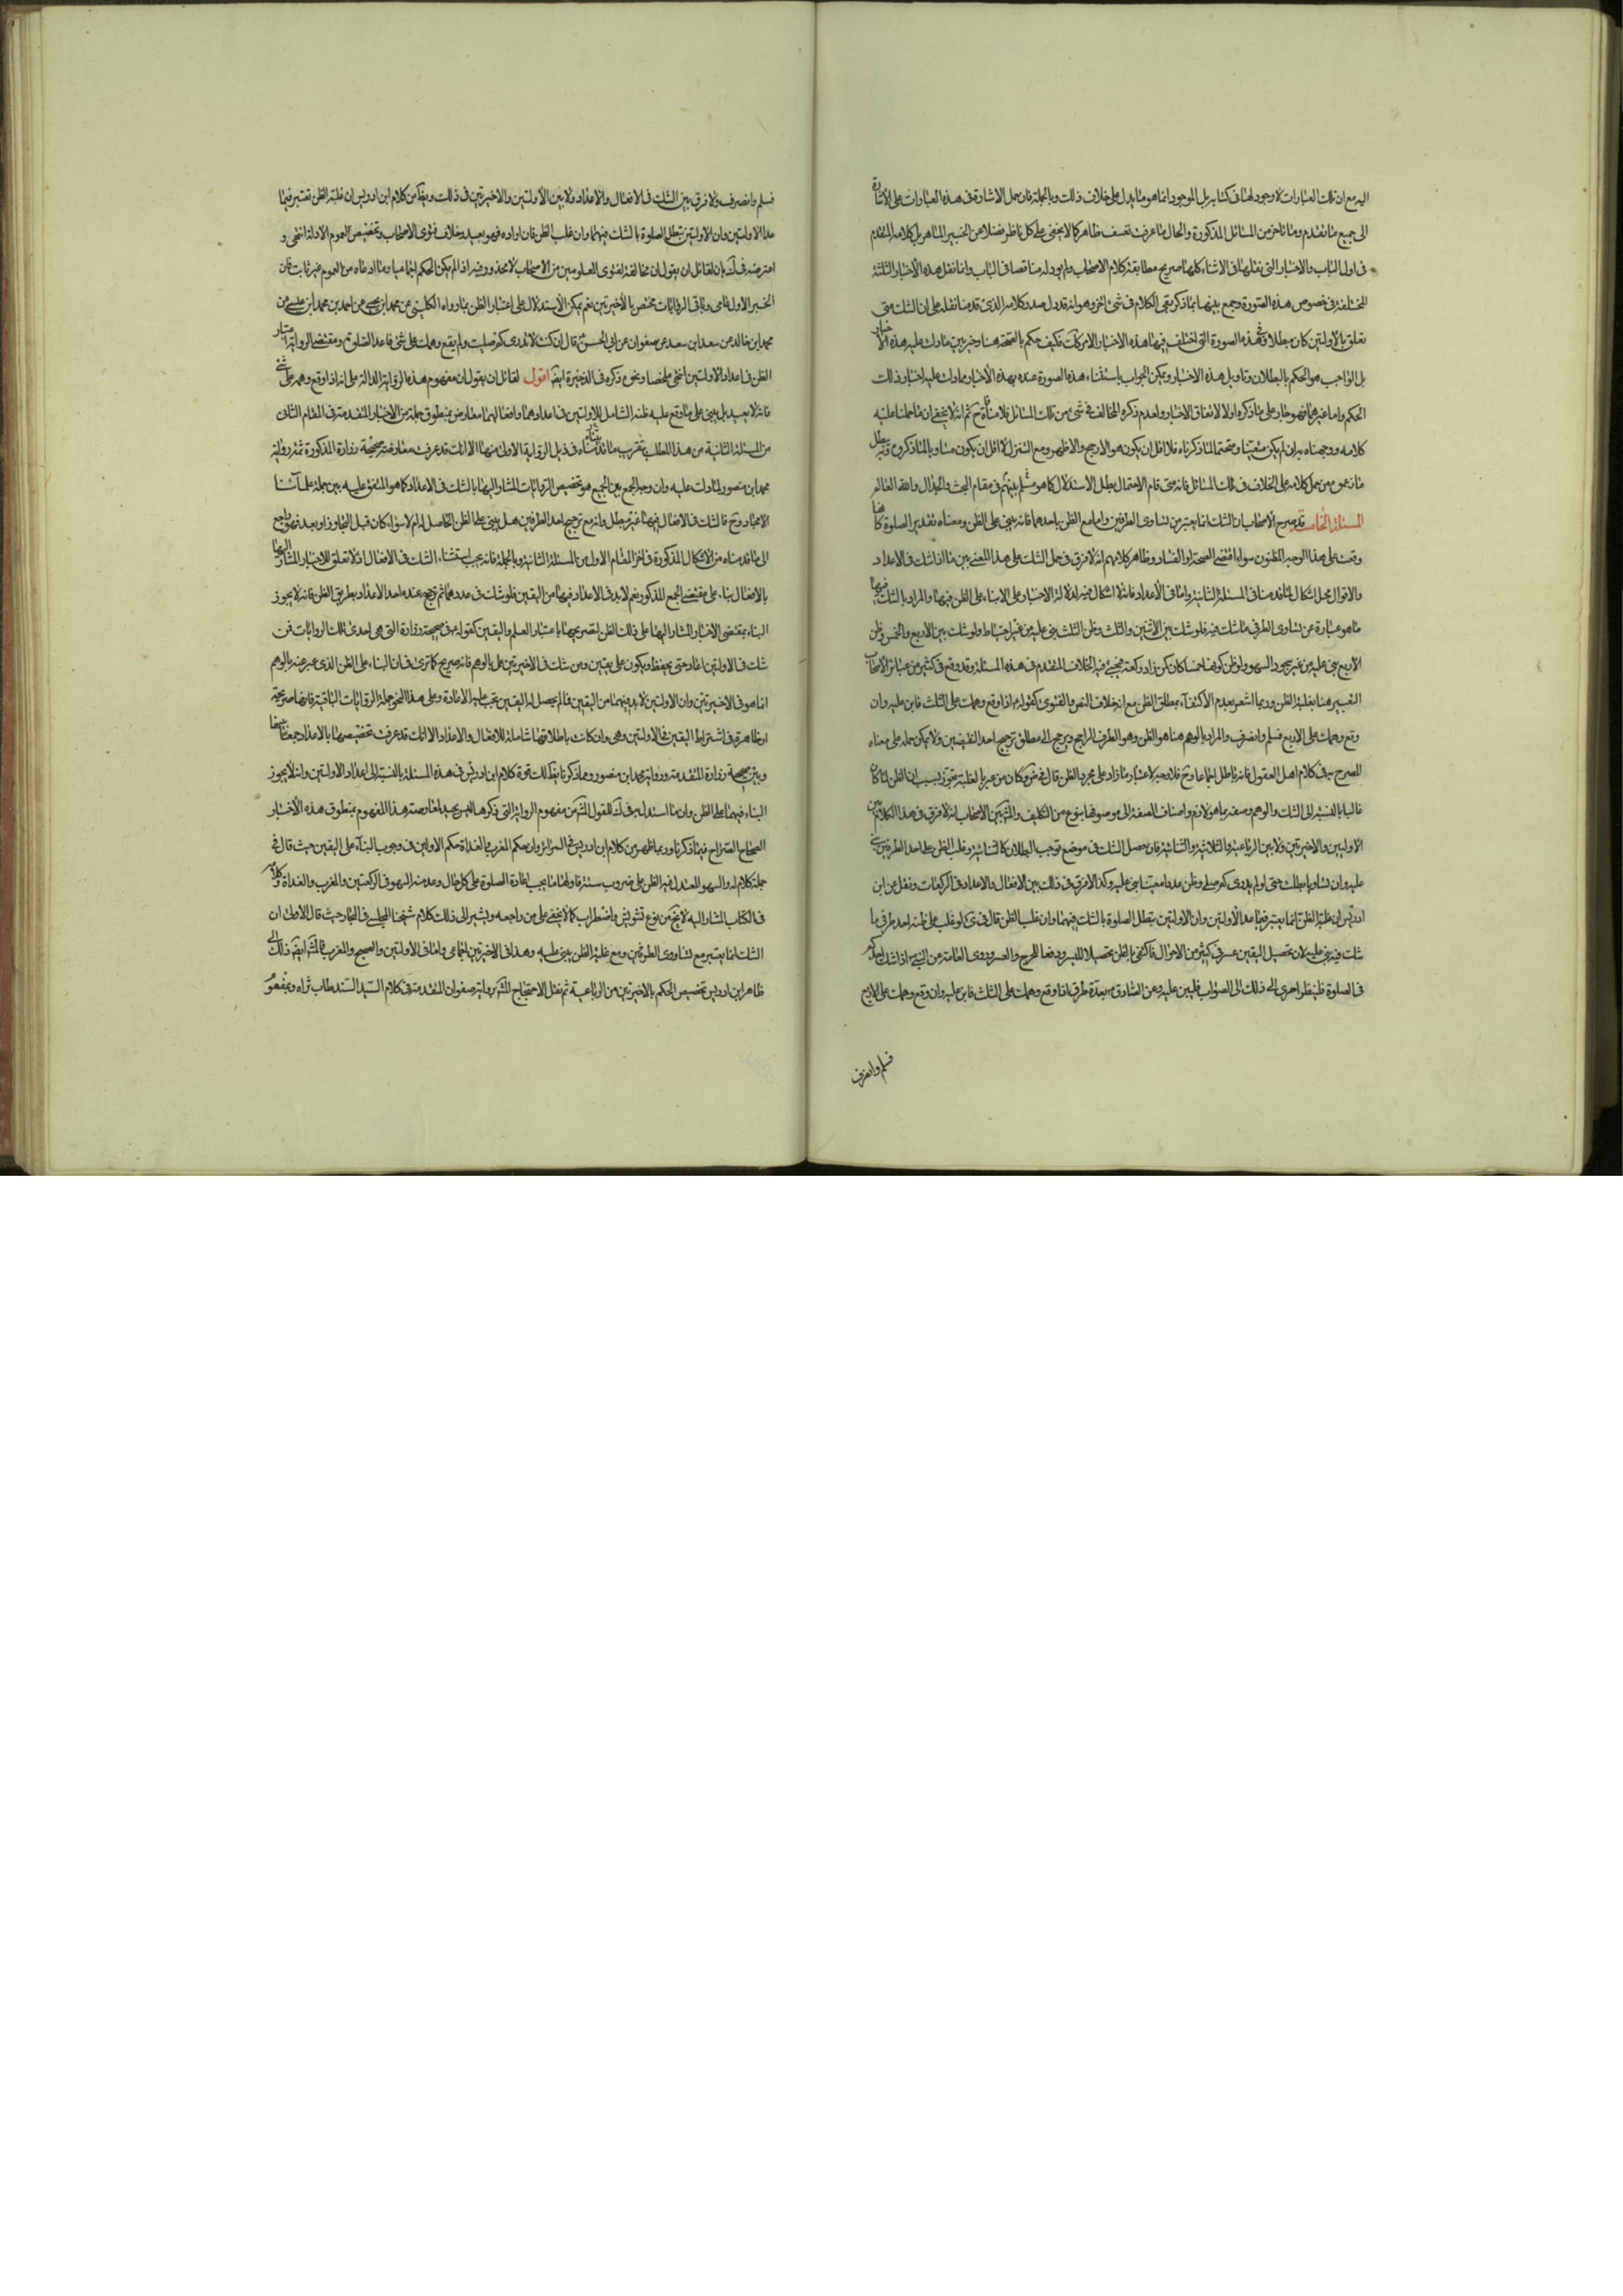 اليه مع ان تلك العبارات لا وجود لها فى كتابه بل الموجود انما هو ما يدل على خلاف ذلك وبالجملة فان حمل الاشارة فى هذه العبارات على الاشارة
الى جميع ما تقدم وما تاخر من المسائل المذكورة والحال ما عرفت تعسف ظاهر كما لا يخفى على كل ناظر فضلا عن الخبير الماهر بل كلامه المتقدم
فى اول الباب والاخبار التى نقلها فى الاثناء كلها صريح مطابقة كلام الاصحاب ولم يورد له مناقضا فى الباب وانما نقل هذه الأخبار الثلثة
المختلفة فى خصوص هذه الصورة وجمع بينها بما ذكر بقى الكلام فى شئ اخر وهو انه قد دل صدر كلامه الذى قدمنا نقله على ان الشك متى
تعلق بالاولتين كان مبطلا وهذه الصورة التى اختلف فيها هذه الاخبار من ذلك فكيف حكم بالصحة هنا وخير بين ما دلت عليه هذه الاخبار
بل الواجب هو الحكم بالبطلان وتاويل هذه الاخبار ويمكن الجواب باستثناء هذه الصورة عنده بهذه الأخبار وما دلت عليه اختيار ذلك
الحكم واما غيرها فهو جار على ما ذكره اولا لاتفاق الاخبار ولعدم ذكره المخالف فى شئ من تلك المسائل فلا منافاة ح ثم انه لا يخفى ان ما حملنا عليه
كلامه ووجهناه به ان لم يكن متعينا ومتحتما لما ذكرناه فلا اقل ان يكون هو الارجح والاظهر ومع التنزل لا اقل ان يكون مساويا لما ذكروه وبه يبطل
ما زعموه من حمل كلامه على الخلاف فى تلك المسائل فانه متى قام الاحتمال بطل الاستدلال كما هو مسلم بينهم فى مقام البحث والجدال والله العالم
المسئلة الخامسة قد صرح الأصحاب بان الشك انما يعتبر مع تساوى الطرفين واما مع الظن باحدهما فانه يبنى على الظن ومعناه تقدير الصلوة كانها
وقعت على هذا الوجه المظنون سواء اقتضى الصحة او الفساد وظاهر كلامهم انه لا فرق فى حمل الشك على هذا المعنى بين ما اذا شك فى الاعداد
والافعال محل اشكال لما قدمنا فى المسئلة الثانية واما فى الأعداد فانه لا اشكال فيه لدلالة الاخبار على البناء على الظن فيها والمراد بالشك فيها
ما هو عبارة عن تساوى الطرفى ما شك فيه فلو شك بين الاثنين والثلث وظن الثلث بنى عليه من غير احتياط ولو شك بين الاربع والخمس وظن
الأربع بنى عليه من غير سجود السهو ولو ظن كونها خمسا كان كمن زاد ركعة فيجئ فيه الخلاف المتقدم فى هذه المسئلة وقد وقع فى كثير من عبائر الأصحاب
التعبير هنا بغلبة الظن وربما اشعر بعدم الاكتفاء بمطلق الظن مع انه خلاف النص والفتوى كقوله ع اذا وقع وهمك على الثلث فابن عليه وان
وقع وهمك على الاربع فسلم وانصرف والمراد بالوهم هنا هو الظن وهو الطرف الراجح ويرجح الى مطلق ترجيح احد النقيضين ولا يمكن حمله على معناه
المصرح به فى كلام اهل العقول فانه باطل اجماعا وح فلا وجه لاعتبار ما زاد على مجرد الظن قال فى ض وكان من عبر بالغلبة تجوز بسبب ان الظن لما كان
غالبا بالنسبة الى الشك والوهم وصفه بما هو لازم واضاف الصفة الى موصوفها بنوع من التكليف والمشهور بين الاصحاب انه لا فرق فى هذا الكلام بين
الاوليين والاخيرتين ولا بين الرباعية والثلاثية والثنائية فان حصل الشك فى موضع توجب البطلان كالثنائية وغلب الظن على احد الطرفين بنى
عليه وان تساويا بطلت حتى لو لم يدر كم صلى وظن عددا معينا بنى عليه وكذا لا فرق فى ذلك بين الافعال والاعداد فى الركعات ونقل عن ابن
ادريس ان غلبة الظن انما يعتبر فيما عدا الأولتين وان الاولتين تبطل الصلوة بالشك فيهما وان غلب الظن قال فى كرى لو غلب على ظنه احد طرفى ما
شك فيه بنى عليه لان تحصيل اليقين عسر فى كثير من الاحوال فاكتفى بالظن تحصيلا لليسر ودفعا للحرج والعسر وروى العامة عن النبى ص اذا شك احدكم
فى الصلوة فلينظر احرى ذلك الى الصواب فليبن عليه وعن الصادق ع بعدة طرق اذا وقع وهمك على الثلث فابن عليه وان وقع وهمك على الاربع
فسلم وانصرف
فسلم وانصرف ولا فرق بين الشك فى الافعال والاعداد ولا بين الأولتين والاخيرتين فى ذلك ويظهر من كلام ابن ادريس ان غلبة الظن تعتبر فيما
عدا الاولتين وان الاولتين تبطل الصلوة بالشك فيهما وان غلب الظن فان اراده فهو بعيد وخلاف فتوى الاصحاب وتخصيص لعموم الادلة انتهى و
اعترضه فى ك بان لقائل ان يقول ان مخالفة لفتوى المعلومين من الاصحاب لا محذور فيه اذا لم يكن الحكم اجماعيا وما ادعاه من العموم غير ثابت فان
الخبر الاول عامى وباقى الروايات مختص بالأخيرتين نعم يمكن الأستدلال على اعتبار الظن بما رواه الكلينى عن محمد بن يحيى عن احمد بن محمد بن عيسى عن
محمد بن خالد عن سعد بن سعد عن صفوان عن ابى الحسن ع قال ان كنت لا تدرى كم صليت ولم يقع وهمك على شئ فاعد الصلوة ومقتضى الرواية اعتبار
الظن فى اعداد الاولتين انتهى ملخصا ونحوه ذكره فى الذخيرة ايضا اقول لقائل ان يقول ان مفهوم هذه الرواية الدالة على انه اذا وقع وهمه على شئ
فانه لا يعيد بل يبنى على ما وقع عليه ظنه الشامل للاولتين فى اعدادهما وافعالهما معارض بمنطوق جملة من الاخبار المتقدمة فى المقام الثانى
من المسئلة الثانية من هذا المطلب بتقريب ما قدمناه فى ذيل الرواية الاولى منها الا انك قد عرفت معارضة صحيحة زرارة المذكورة ثمة برواية
محمد بن منصور لما دلت عليه وان وجه الجمع بين الجميع هو تخصيص الروايات المشار اليها بالشك فى الاعداد كما هو المتفق عليه بين جملة علمائنا
الامجاد وح فالشك فى الافعال فيهما غير مبطل وانه مع ترجيح احد الطرفين هل يبنى على الظن الحاصل له ام لا سواء كان قبل التجاوز او بعده فهو راجع
الى ما قدمناه من الاشكال المذكورة فى اخر المقام الاول من المسئلة الثانية وبالجملة فانه يجب استثناء الشك فى الافعال اذ لا تعلق للاخبار المشار اليها
بالافعال بناء على مقتضى الجمع المذكور نعم لا بد فى الاعداد فيهما من اليقين فلو شك فى عددهما ثم ترجح عنده احد الاعداد بطريق الظن فانه لا يجوز
البناء بمقتضى الاخبار المشار اليها على ذلك الظن لتصريحها باعتبار العلم واليقين كقوله ع فى صحيحة زرارة التى هى احدى تلك الروايات فمن
شك فى الاولتين اعاد حتى يحفظ ويكون على يقين ومن شك فى الاخيرتين عمل بالوهم فانه صريح كما ترى فى ان البناء على الظن الذى عبر عنه بالوهم
انما هو فى الاخيرتين وان الاولتين لا بد فيهما من اليقين فما لم يحصل له اليقين تجب عليه الاعادة وعلى هذا النحو جملة الروايات الباقية فانها صريحة
او ظاهرة فى اشتراط اليقين فى الاولتين وهى وان كانت باطلاقها شاملة للافعال والاعداد الا انك قد عرفت تخصيصها بالاعداد جمعا بينها
وبين صحيحة زرارة المتقدمة ورواية محمد بن منصور وبما ذكرنا يظهر لك قوة كلام ابن ادريس فى هذه المسئلة بالنسبة الى اعداد الاولتين وانه لا يجوز
البناء فيهما على الظن وان ما استدل به فى ك للقول المشهور من مفهوم الرواية التى ذكرها غير جيد لمعارضة هذا المفهوم بمنطوق هذه الأخبار
الصحاح الصراح فيما ذكرنا وربما ظهر من كلام ابن ادريس فى السرائر وان حكم المغرب والغداة حكم الاولتين فى وجوب البناء على اليقين حيث قال فى
جملة كلام له والسهو المعتدل فيه الظن على ضروب ستة فاولها ما يجب اعادة الصلوة على كل حال وعد منه السهو فى الركعتين والمغرب والغداة وكلامه
فى الكتاب المشار اليه لا يخ من نوع تشويش واضطراب كما لا يخفى على من راجعه ويشير الى ذلك كلام شيخنا المجلسى فى البحار حيث قال الاولى ان
الشك انما يعتبر مع تساوى الطرفين ومع غلبة الظن يبنى عليه وهذا فى الاخيرتين اجماعى واما فى الاولتين والصبح والمغرب فالمشهور ايضا ذلك
ظاهر ابن ادريس تخصيص الحكم بالاخيرتين من الرباعية ثم نقل الاحتجاج للمشهور برواية صفوان المتقدمة فى كلام السيد السند طاب ثراه وبمفهوم